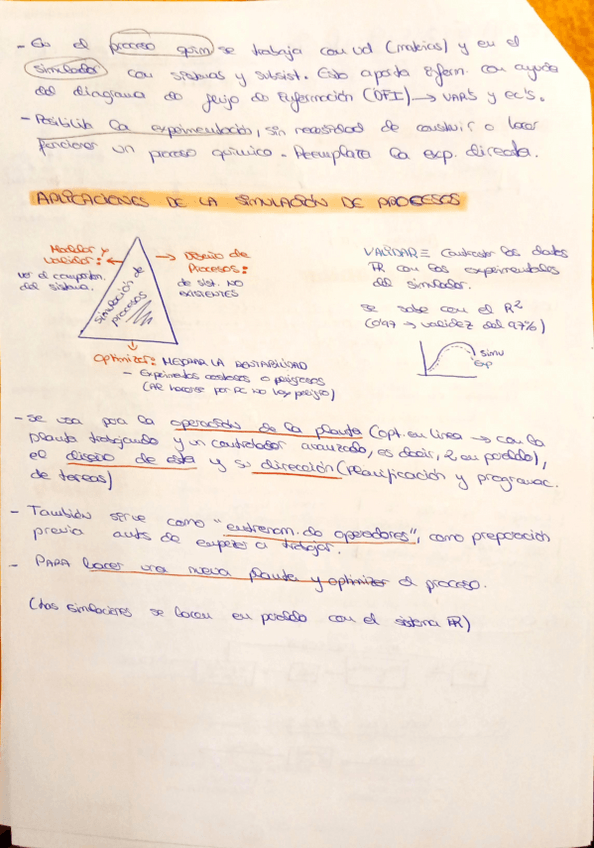 - En el proceso quím se trabaja con ud (materias) y en el
simulador con sistemas y subsist. Esto aporta inform. con ayuda
del diagrama de flujo de Información (DFI) → VAR'S y ec's.
- Posibilita la experimentación, sin necesidad de construir o hacer
funcionar un proceso químico. Reemplaza la exp. directa.
APLICACIONES DE LA SIMULACIÓN DE PROCESOS
Modelar y
Validar:
ver el comportam.
del sistema.
simulación de
procesos
→ Diseño de
Procesos:
de sist. NO
EXISTENTES
VALIDAR ≡ Contrastar los datos
con los experimentales
del simulador.
se sabe con el R²
(0'97 → validez del 97%)
simu
exp
Optimizar: MEJORAR LA RENTABILIDAD
- Experimentos costosos o peligrosos
(Al hacerse por PC no hay peligro)
- Se usa para la operación de la planta (opt. en línea → con la
planta trabajando y un controlador avanzado, es decir, 2 en paralelo),
el diseño de esta y su dirección (Planificación y programac.
de tareas)
- También sirve como "entrenam. de operadores", como preparación
previa antes de empezar a trabajar.
- PARA hacer una nueva planta y optimizar el proceso.
(Las simulaciones se hacen en paralelo con el sistema)